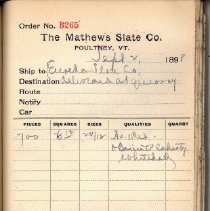 Order No. B265
The Mathews Slate Co.
POULTNEY, VT.
Sept 2, 1898
Ship to Eureka Slate Co,
Destination Deliver at quarry
Route
Notify
Car
PIECES SQUARES SIZES QUALITIES QUARRY
700 20/12 No. 1 Red